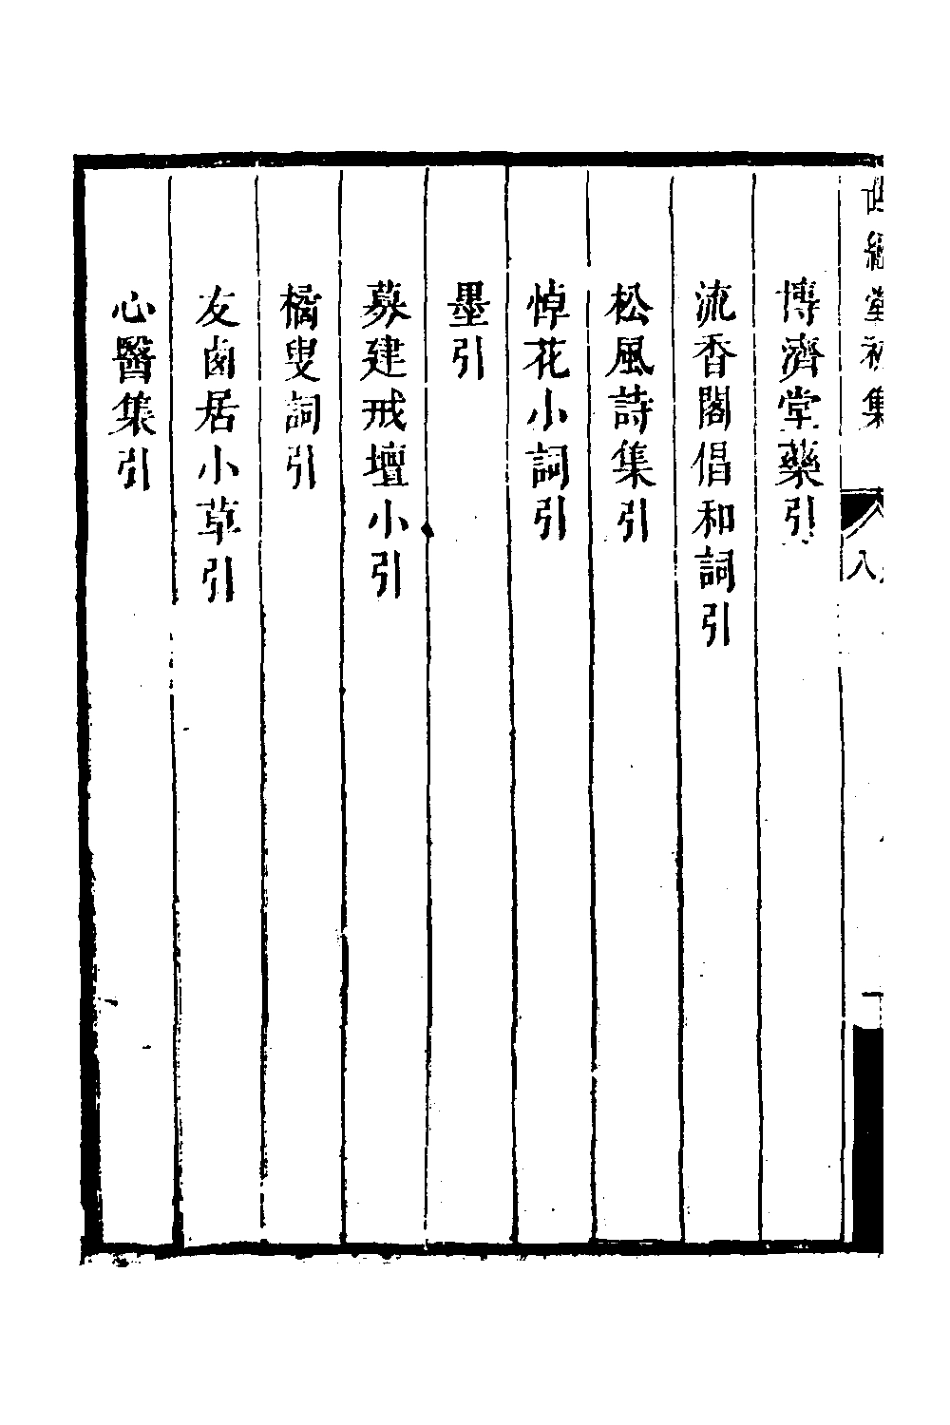 世經堂初集
八
博濟堂藥引
流香閣倡和詞引
松風詩集引
悼花小詞引
墨引
募建戒壇小引
橘叟詞引
友鹵居小草引
心醫集引